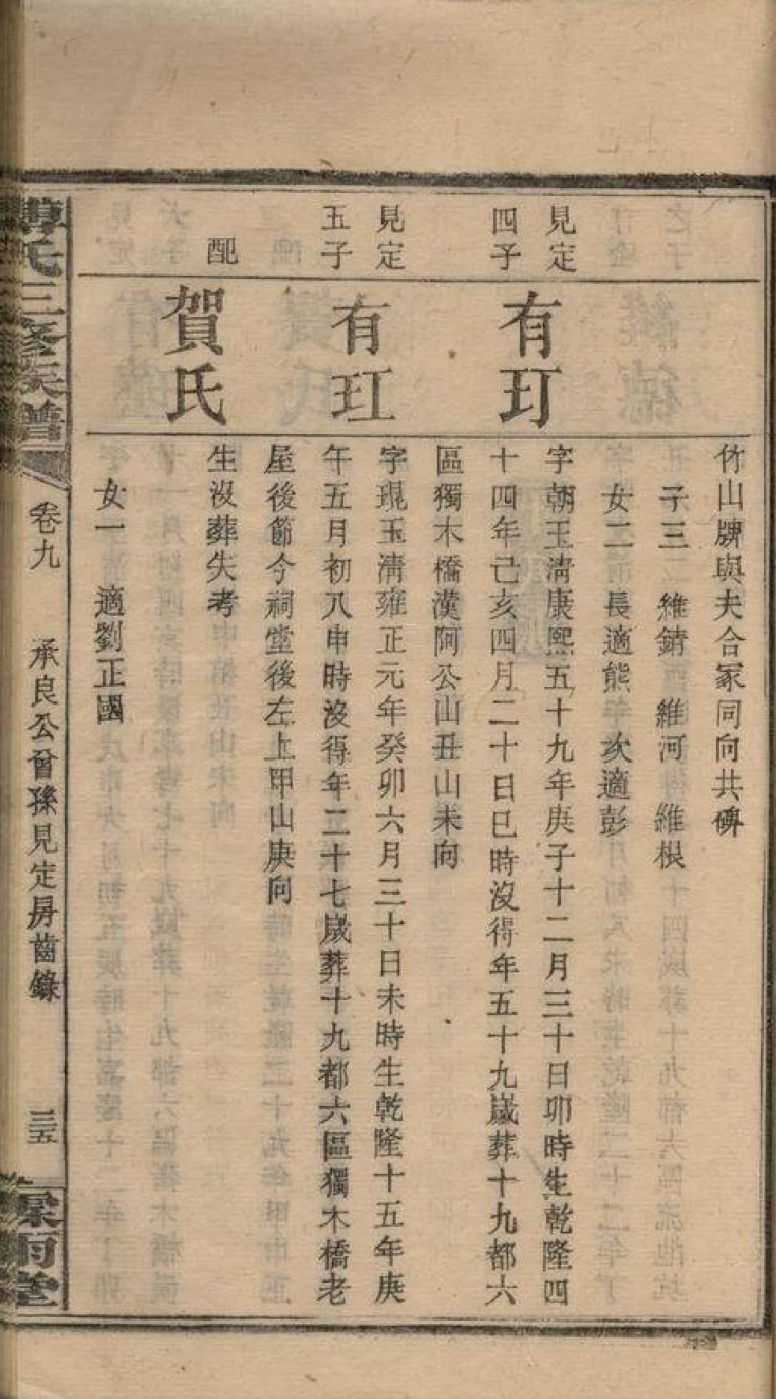 竹山牌與夫合冢同向共碑
子三 維錆 維河 維根
女二 長適熊 次適彭
見定四子
有玎
字朝玉清康熙五十九年庚子十二月三十日卯時生乾隆四
十四年己亥四月二十日巳時沒得年五十九歲葬十九都六
區獨木橋漢阿公山丑山未向
見定五子
有玒
字琨玉清雍正元年癸卯六月三十日未時生乾隆十五年庚
午五月初八申時沒得年二十七歲葬十九都六區獨木橋老
屋後節今祠堂後左上甲山庚向
配
賀氏
生沒葬失考
女一 適劉正國
氏三修族譜
卷九
承良公曾孫見定房齒錄
三五
雨堂